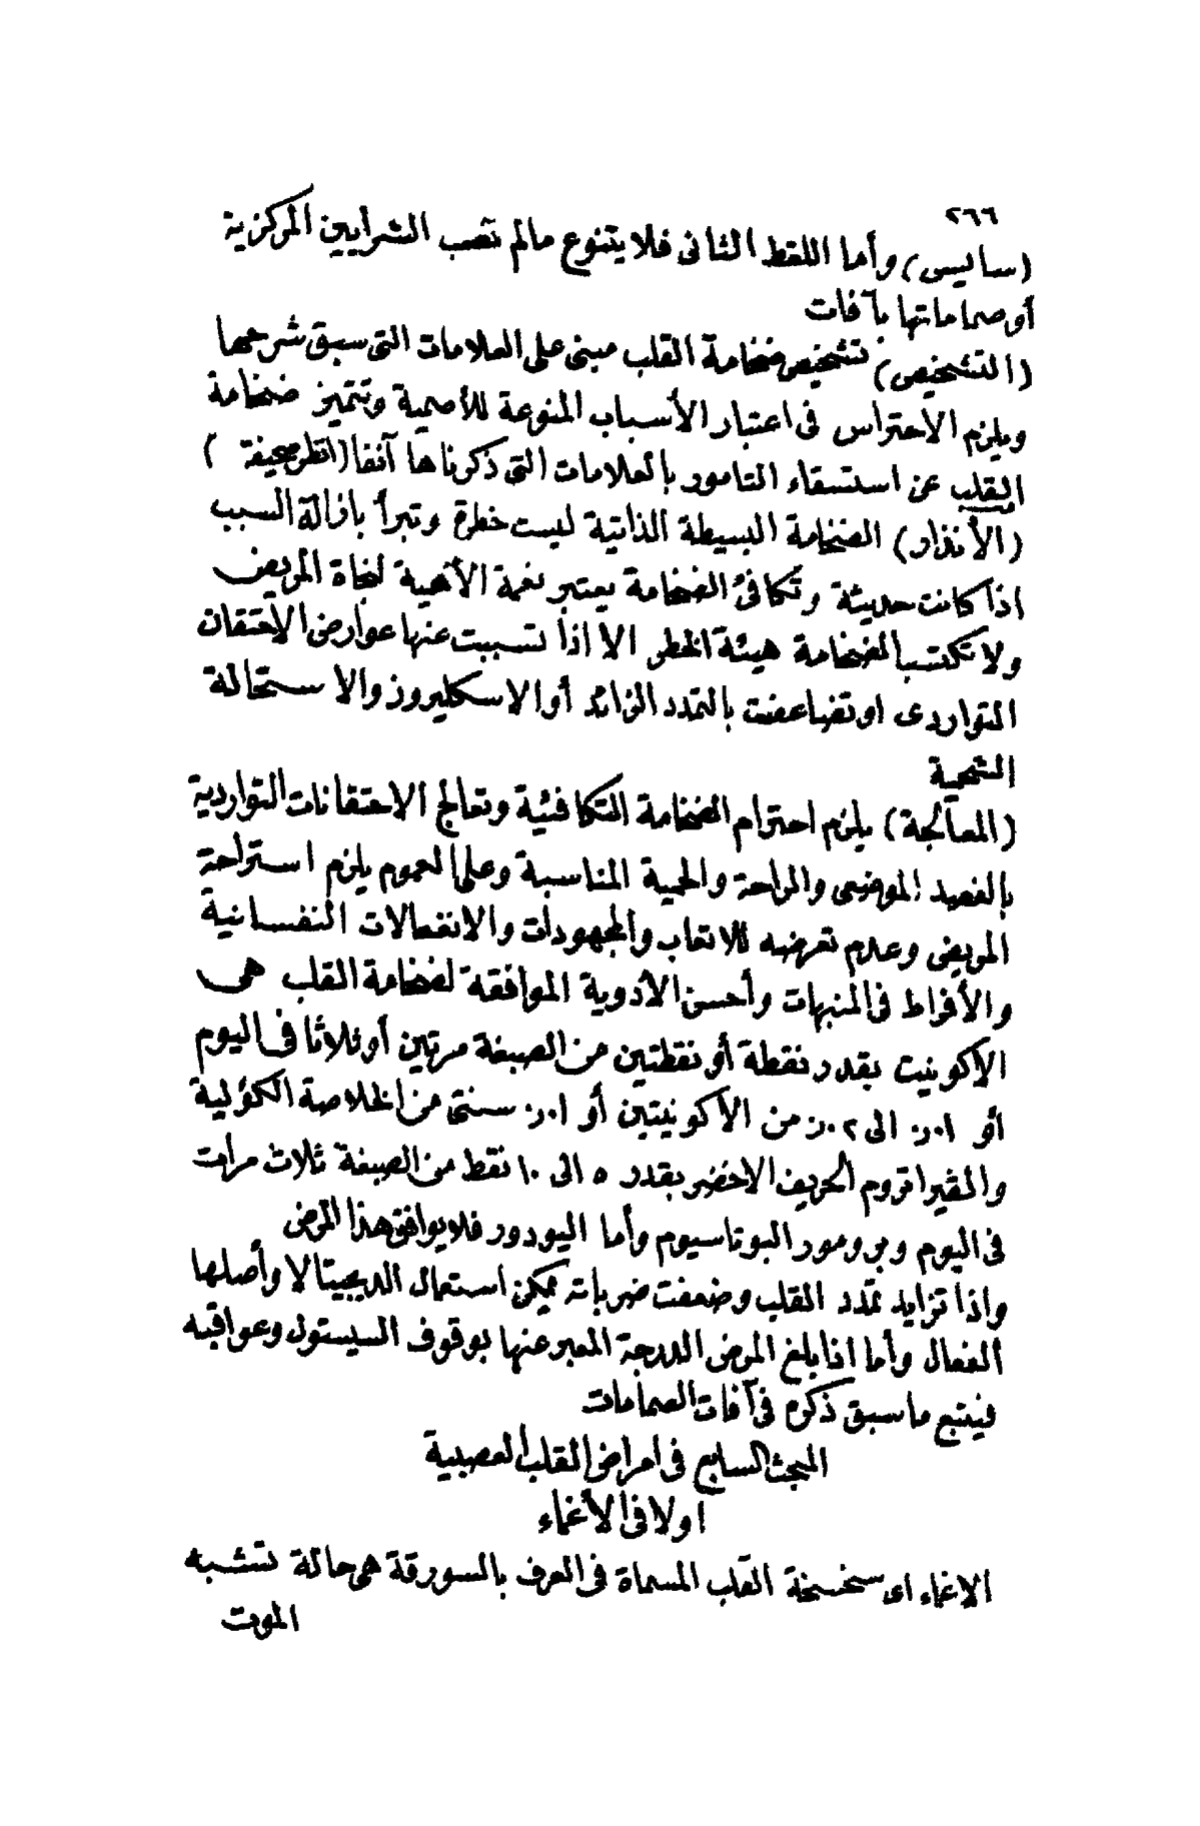 ٢٦٦
(سايسى) وأما اللغط الثانى فلا يتنوع مالم تصب الشرايين المركزية
أوصماماتها بآفات
(التشخيص) تشخيص ضخامة القلب مبنى على العلامات التى سبق شرحها
ويلزم الاحتراس فى اعتبار الأسباب المنوعة للأصمية وتتميز ضخامة
القلب عن استسقاء التامور بالعلامات التى ذكرناها آنفا (انظر صحيفة )
(الأنذار) الضخامة البسيطة الذاتية ليست خطرة وتبرأ بازالة السبب
اذا كانت حديثة وتكافئ الضخامة يعتبر نعمة الأهمية لنجاة المريض
ولا تكتسب الضخامة هيئة الخطر الا اذا تسببت عنها عوارض الاحتقان
التواردى او تضاعفت بالتمدد الزائد أو الاسكليروز والاستحالة
الشحمية
(المعالجة) يلزم احترام الضخامة التكافئية وتعالج الاحتقانات التواردية
بالفصد الموضعى والراحة والحمية المناسبة وعلى العموم يلزم استراحة
المريض وعدم تعرضه للاتعاب والمجهودات والانفعالات النفسانية
والأفراط فى المنبهات وأحسن الأدوية الموافقة لضخامة القلب هى
الاكونيت بقدر نقطة أو نقطتين من الصبغة مرتين أو ثلاثا فى اليوم
أو ٠١ر الى ٠٢ر من الأكونيتين أو ٠١ر سنتى من الخلاصة الكؤلية
والفيراتروم الحريف الاخضر بقدر ٥ الى ١٠ نقط من الصبغة ثلاث مرات
فى اليوم وبرومور البوتاسيوم وأما اليودور فلا يوافق هذا المرض
واذا تزايد تمدد القلب وضعفت ضرباته يمكن استعمال الديجيتالا وأصلها
الفعال وأما اذا بلغ المرض الدرجة المعبر عنها بوقوف السيستول وعواقبه
فيتبع ما سبق ذكره فى آفات الصمامات
المبحث السابع فى امراض القلب العصبية
اولا فى الأغماء
الاغماء اى سخسخة القلب المسماة فى العرف بالسورقة هى حالة تشبه
الموت